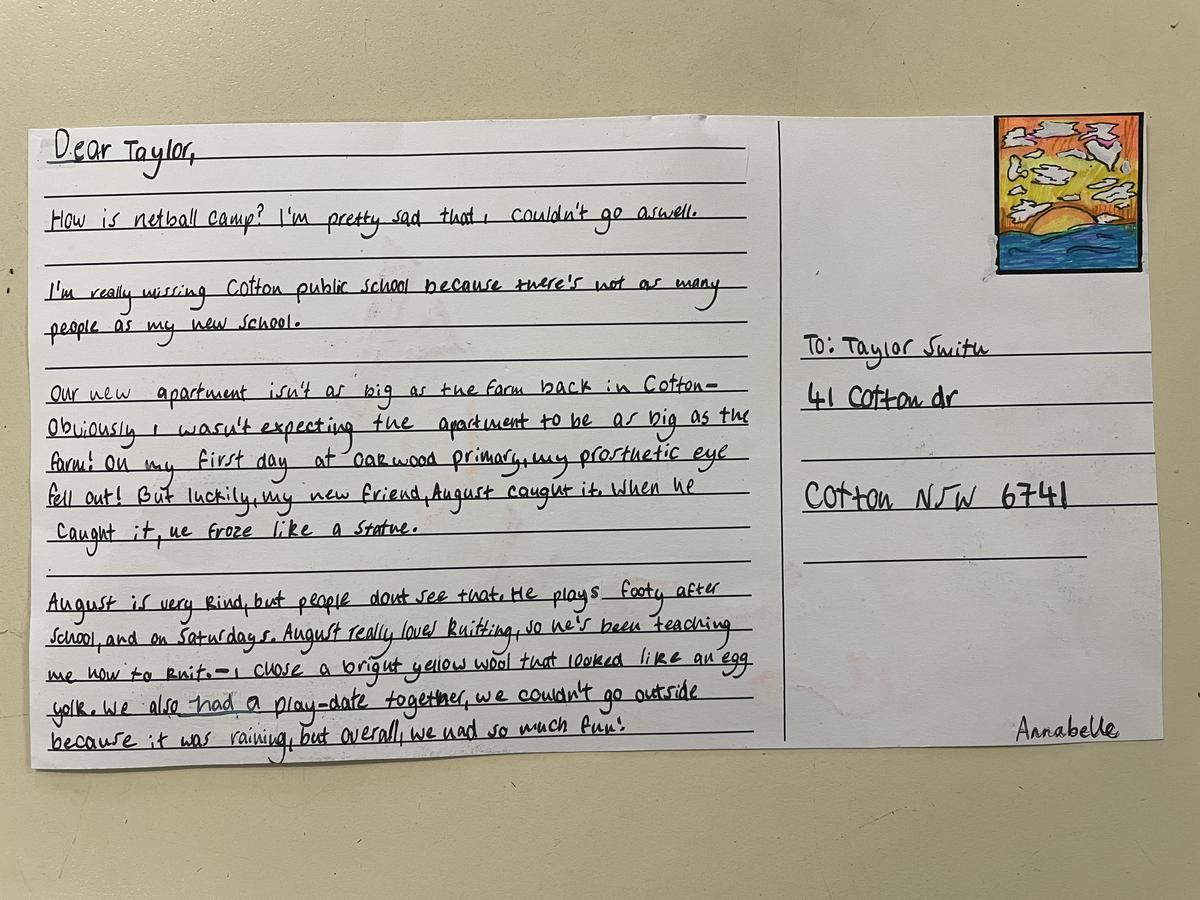 Dear Taylor,
How is netball camp? I'm pretty sad that i couldn't go aswell.
I'm really missing Cotton public school because there's not as many
people as my new school.
Our new apartment isn't as big as the farm back in Cotton-
Obviously i wasn't expecting the apartment to be as big as the
farm! On my first day at Oakwood primary, my prosthetic eye
fell out! But luckily, my new friend, August caught it. When he
caught it, he froze like a statue.
August is very kind, but people dont see that. He plays footy after
school, and on Saturdays. August really loves knitting, so he's been teaching
me how to knit.- i chose a bright yellow wool that looked like an egg
yolk. We also had a play-date together, we couldn't go outside
because it was raining, but overall, we had so much fun!
To: Taylor Smith
41 Cotton dr
Cotton NSW 6741
Annabelle